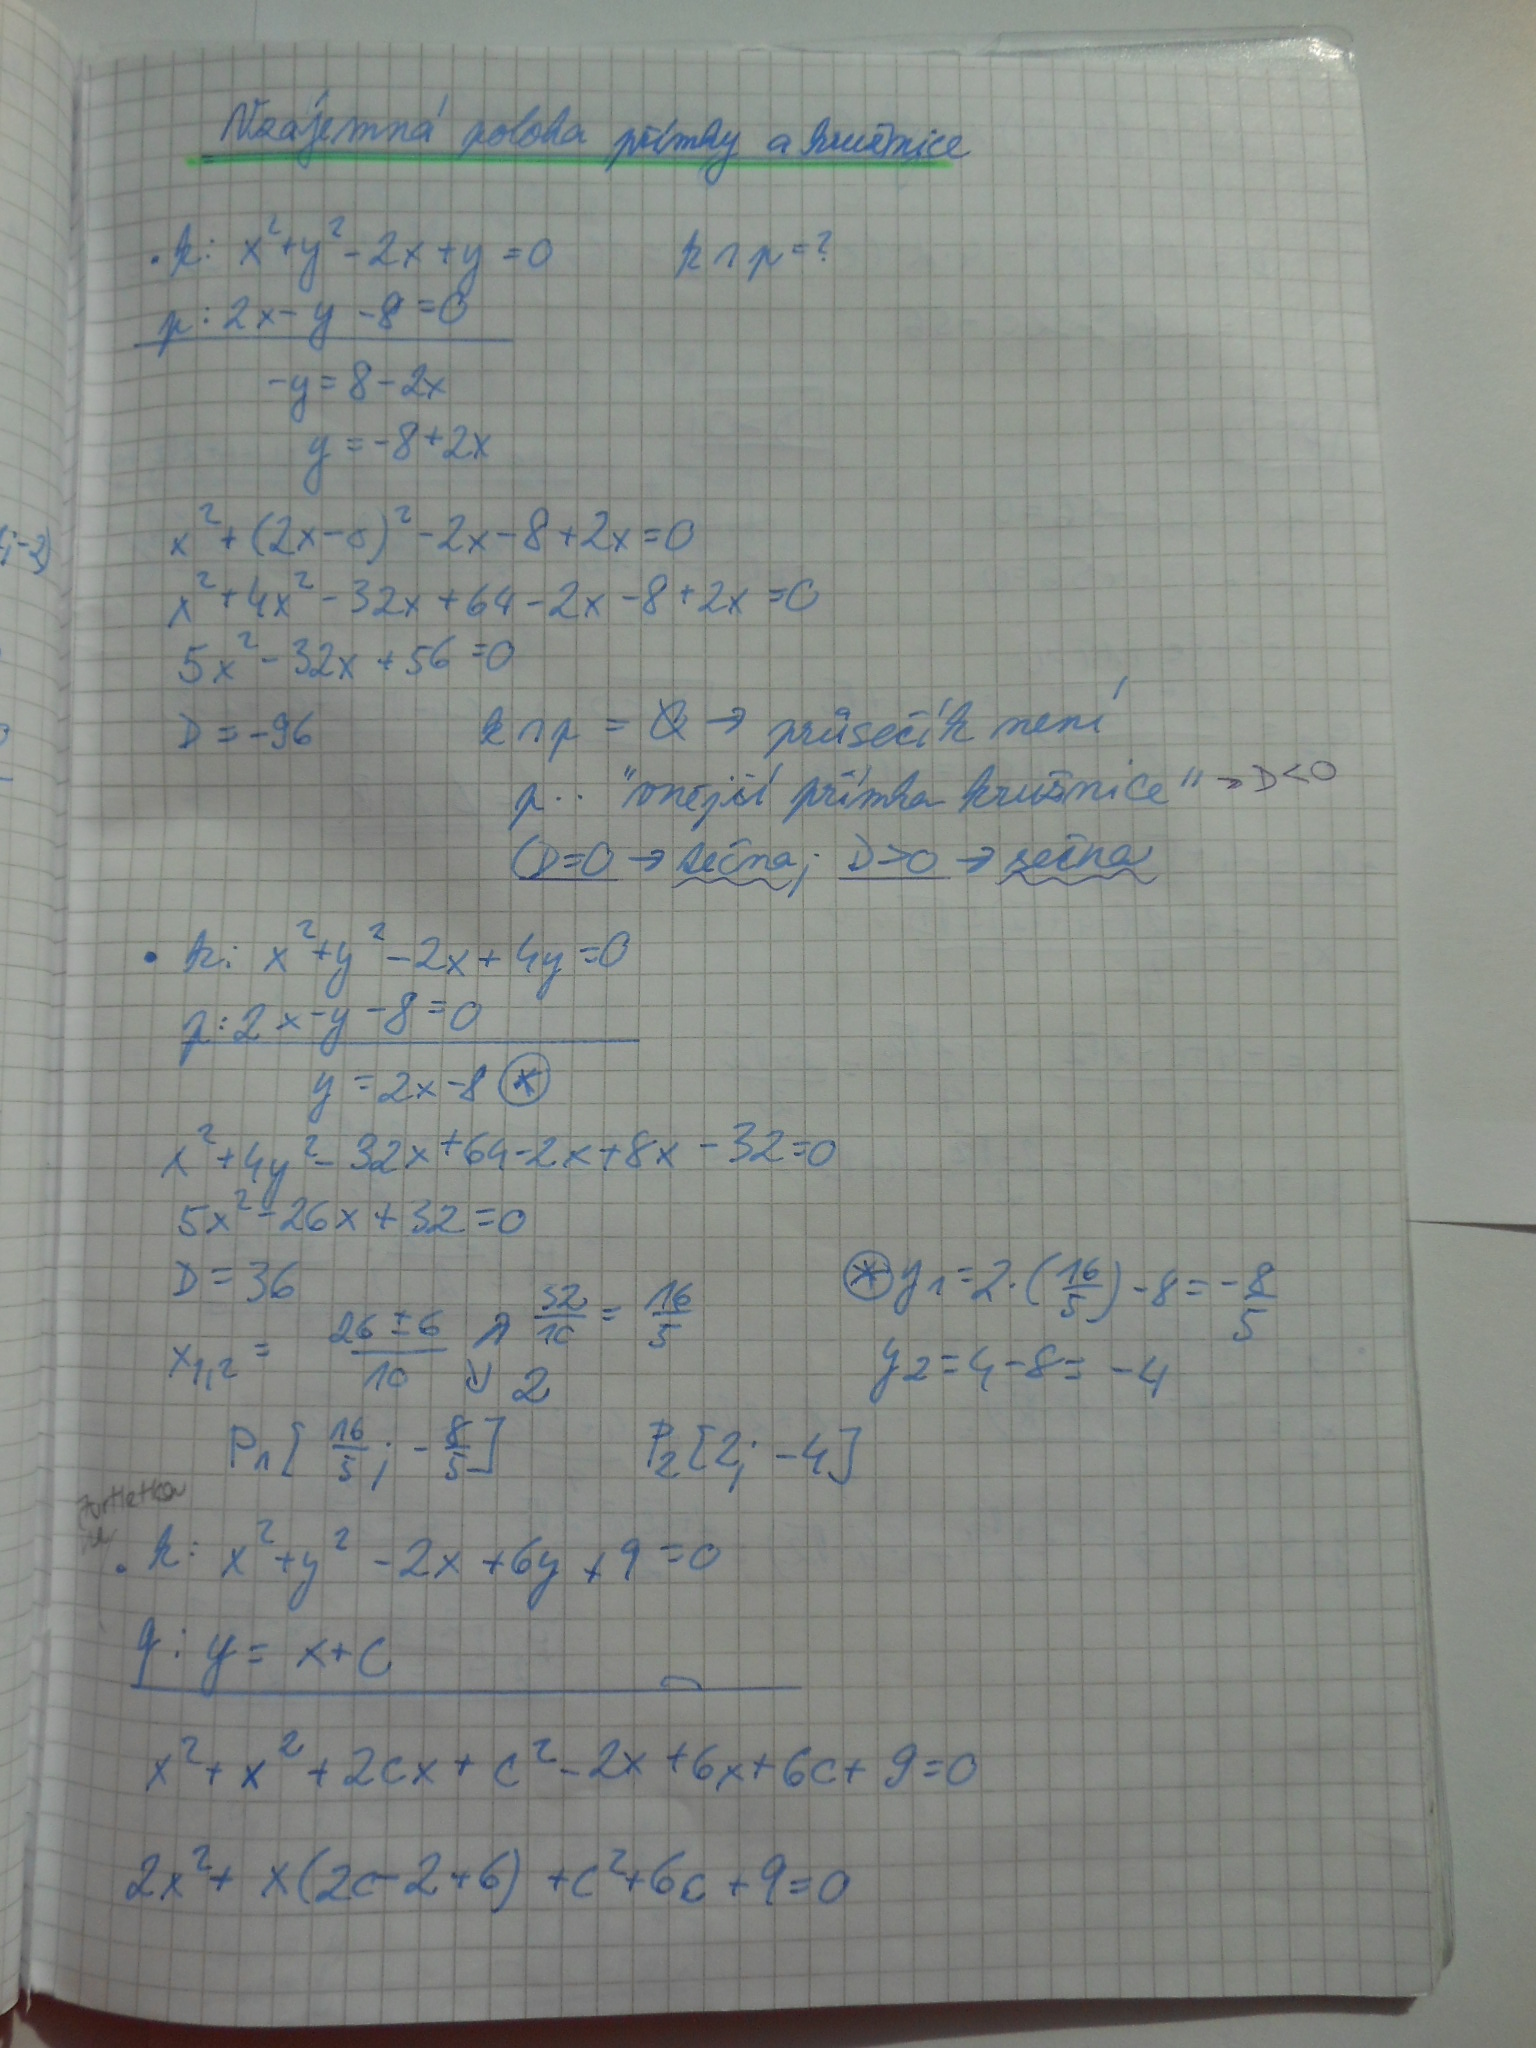 Vzájemná poloha přímky a kružnice
• k: x²+y²-2x+y=0 k∩p=?
p: 2x-y-8=0
-y=8-2x
y=-8+2x
x²+(2x-8)²-2x-8+2x=0
x²+4x²-32x+64-2x-8+2x=0
5x²-32x+56=0
D=-96 k∩p = Ø → průsečík není
p.. "vnější přímka kružnice" → D<0
(D=0 → tečna; D>0 → sečna
• k: x²+y²-2x+4y=0
p: 2x-y-8=0
y=2x-8 (*)
x²+4y²-32x+64-2x+8x-32=0
5x²-26x+32=0
D=36
x₁,₂ = (26±6)/10 ↗ 32/10 = 16/5 ↘ 2
(*) y₁=2·(16/5)-8=-8/5
y₂=4-8=-4
P₁[16/5; -8/5] P₂[2; -4]
• k: x²+y²-2x+6y+9=0
q: y=x+c
x²+x²+2cx+c²-2x+6x+6c+9=0
2x²+x(2c-2+6)+c²+6c+9=0